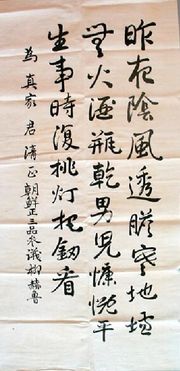 昨夜陰風透膽寒地爐
無火酒瓶乾男児慷慨平
生事時復挑灯把劔看
為真家君清正 朝鮮正三品参議柳赫魯